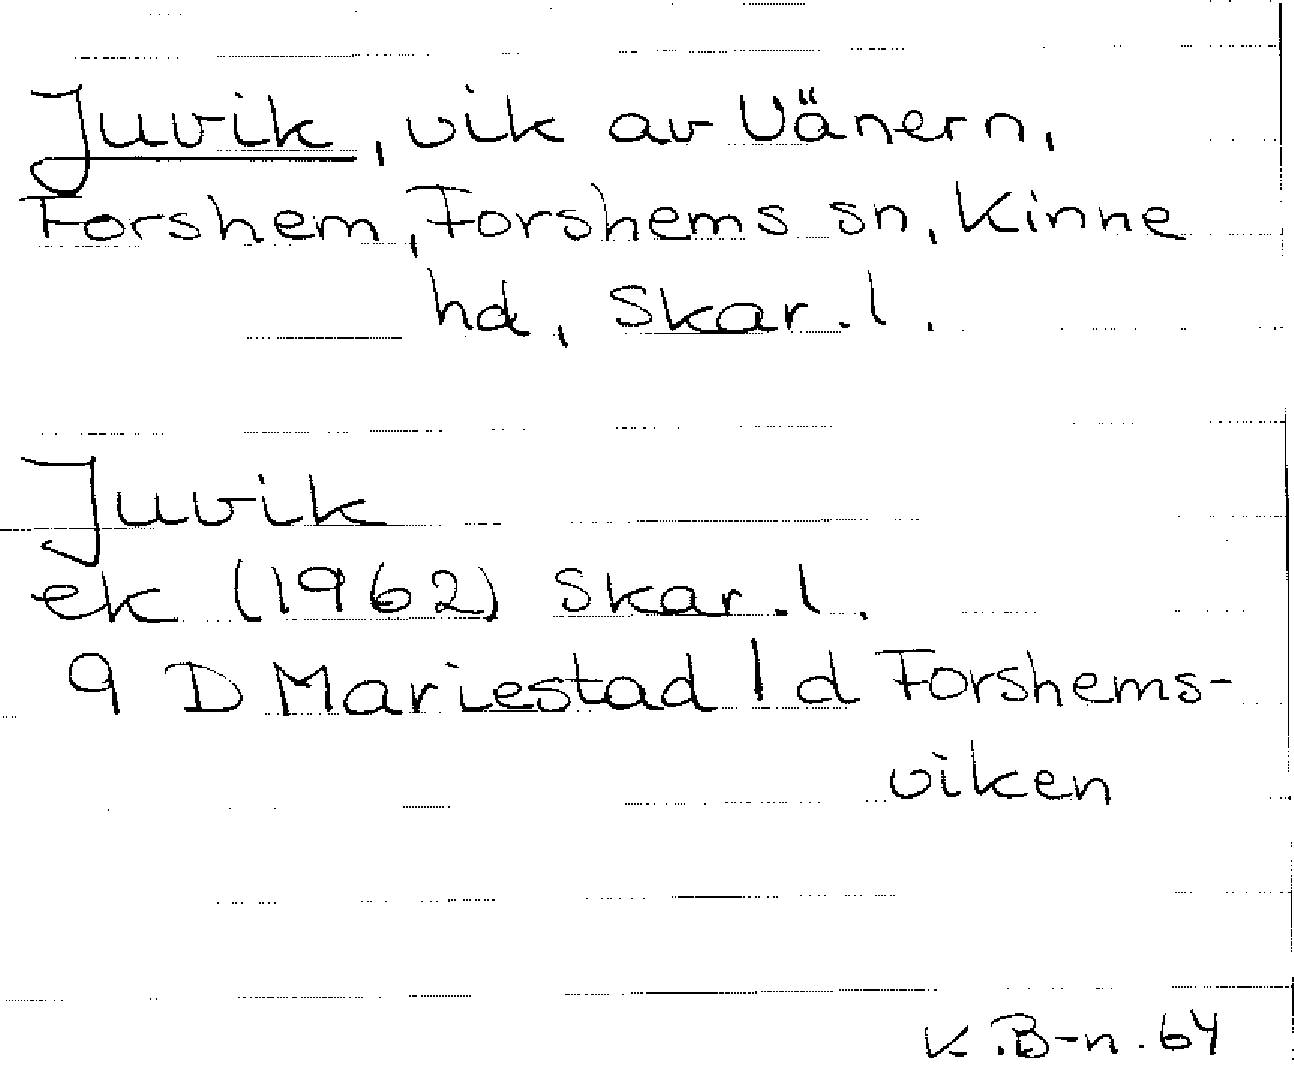 Juvik, vik av Vänern,
Forshem, Forshems sn, Kinne
hd, Skar. l.
Juvik
ek (1962) Skar. l.
9 D Mariestad 1 d Forshems-
viken
K. B-n. 64